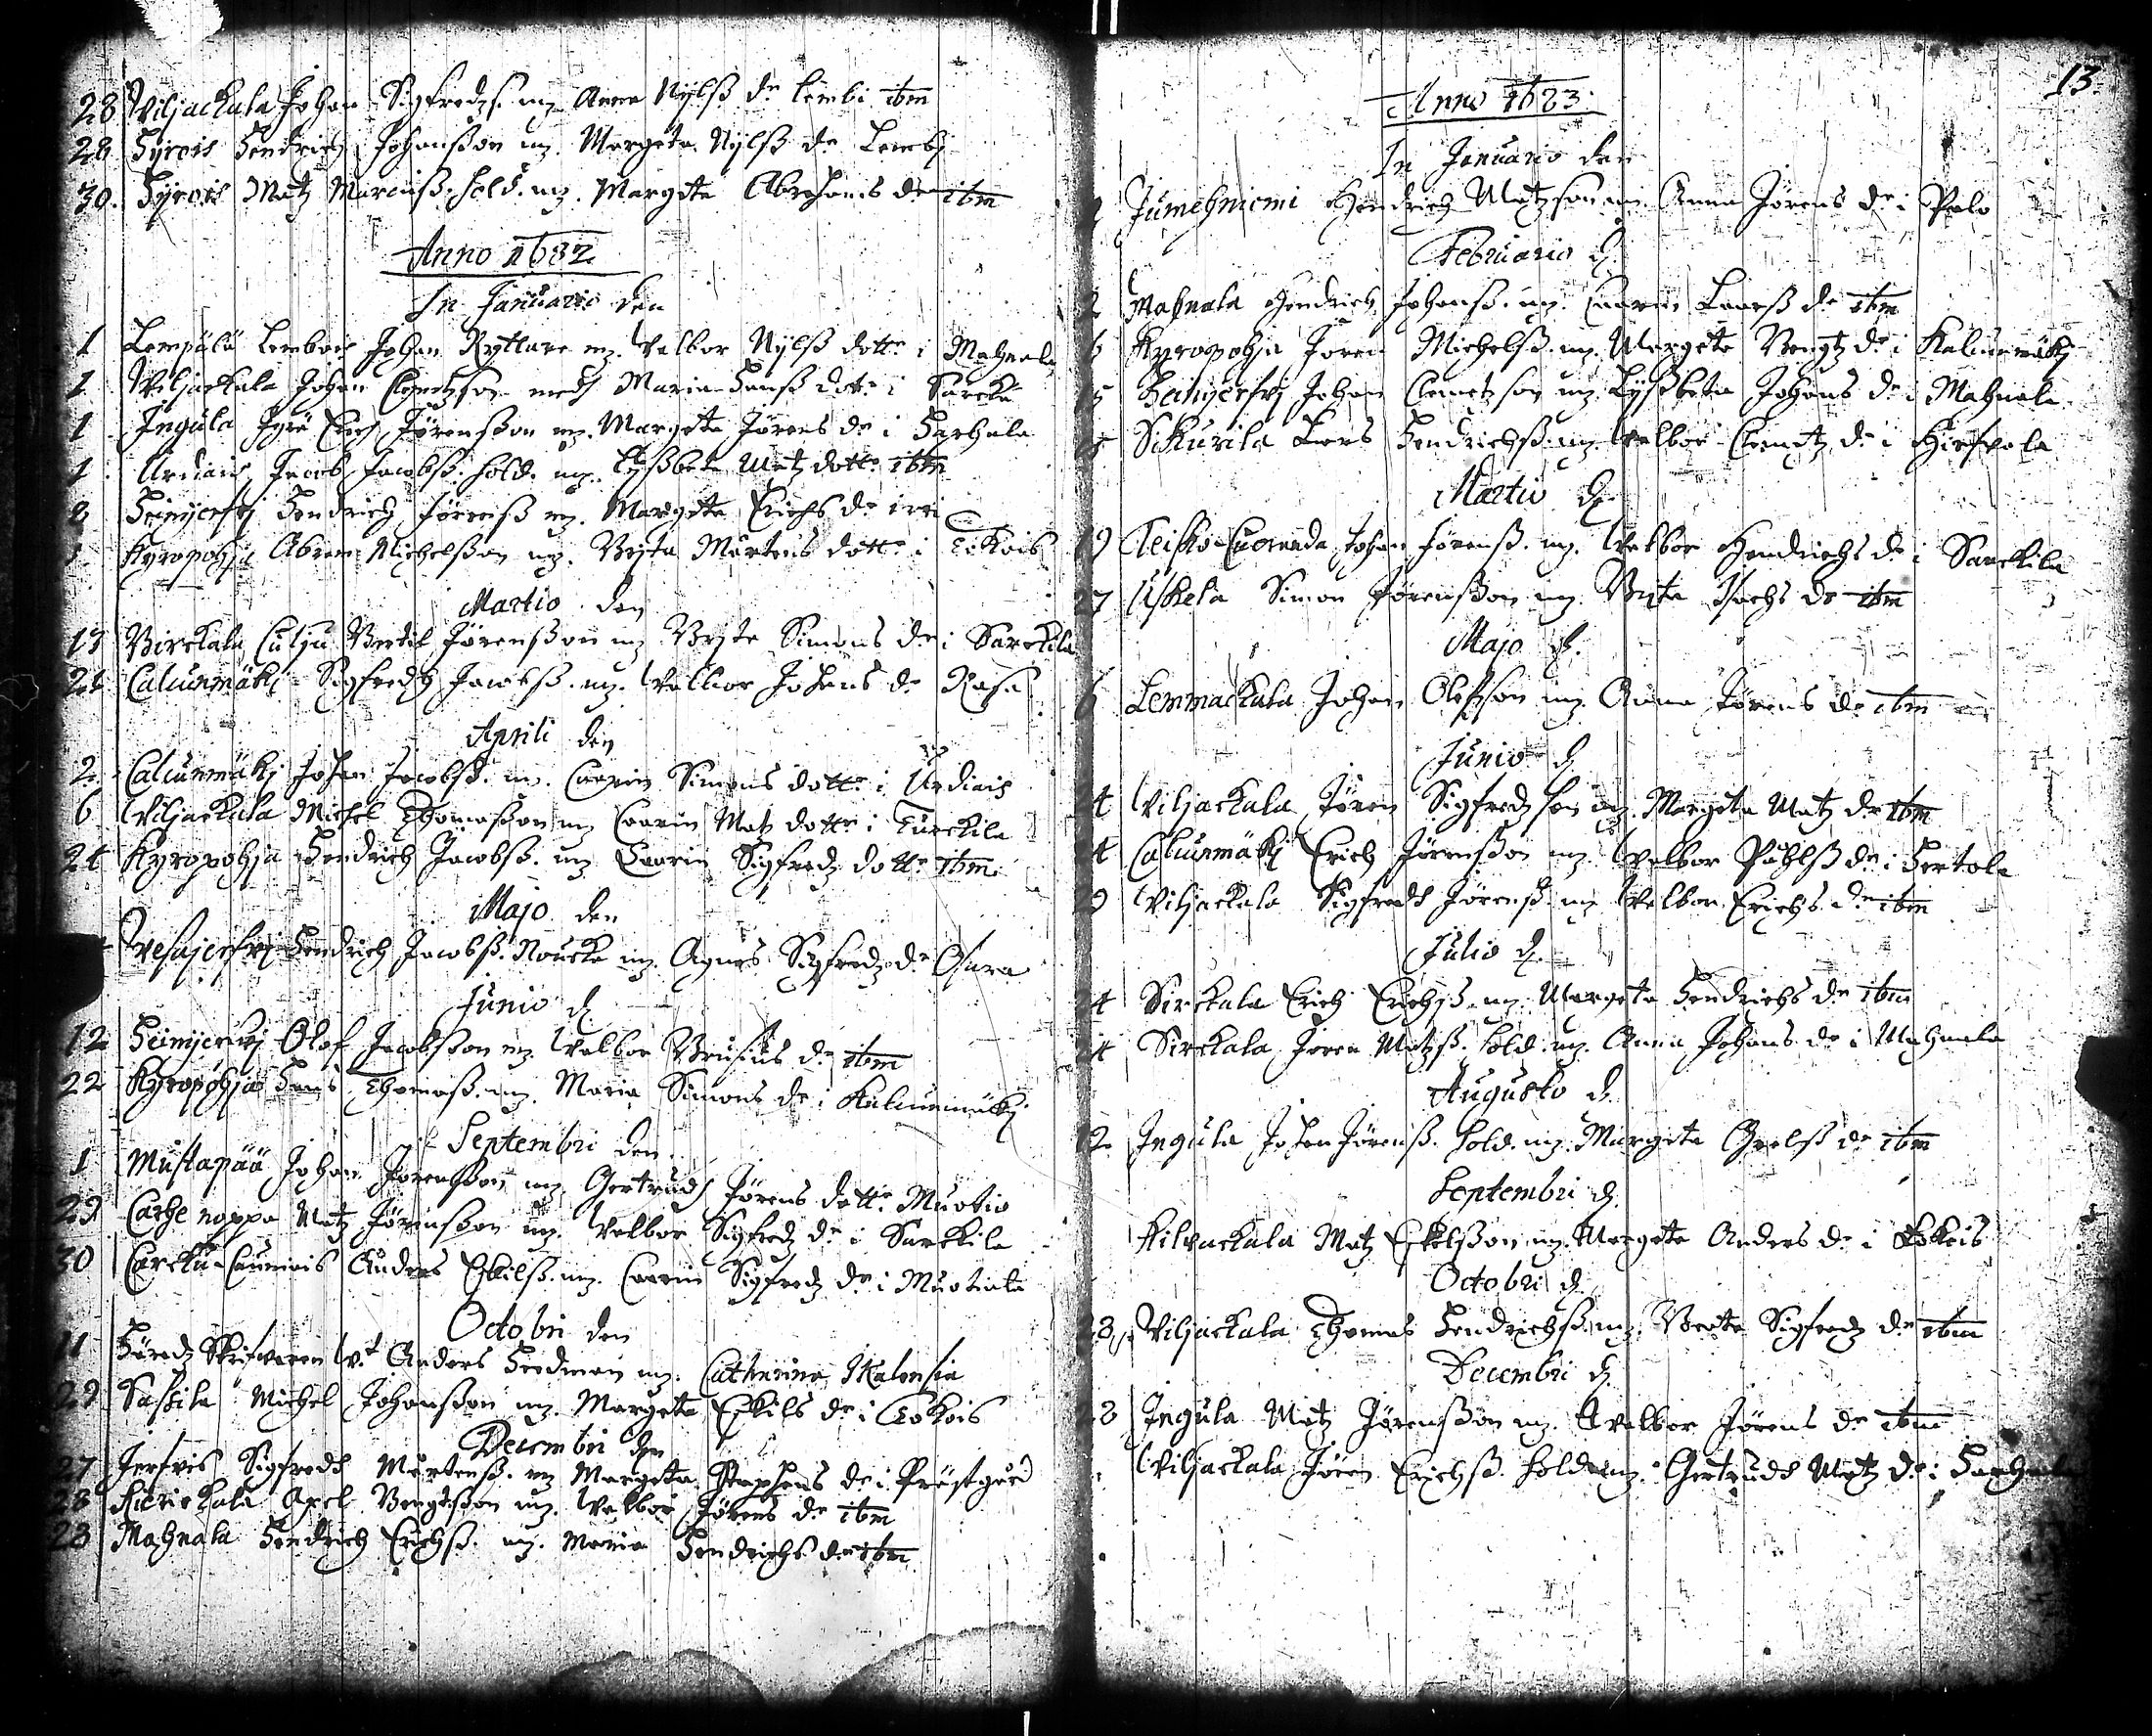 28 Viljackala Johan Sigfredzs. mz. Anna Nylß dr. Lembi ibm
28 Hyrois Hendrich Johansson mz. Margeta Nylß dr. Lembj
30. Hyrois Matz Marcusß. sold. mz. Margeta Abrahams dr. ibm
Anno 1682
In Januario den
1 Lempälä Lembois Johan Ryttare mz. Valbor Nylß dotter i Mahnala
1 Viljackala Johan Clemetzson medh Maria Hanß dotter i Sarcki
1 Ingula Jyrä Erich Jörensson mz. Margeta Jörens dr. i Harhala
1 Urdiais Jacob Jacobß. sold. mz. Lyßbeta Matz dotter ibm
8 Heinijerfvj Hendrich Jörenß mz. Margeta Erichs dr.
Kyropohja Abram Michelsson mz. Bryta Mårtens dotter i Tokois
Martio den
13 Birckala Culju Bertil Jörensson mz. Bryta Simons dr. i Sarckila
21 Calcunmäkj Sigfredh Jacobß. mz. Valbor Johans dr. Rasa
Aprili den
2. Calcunmäkj Johan Jacobß. mz. Caarin Simons dotter i Urdiais
6 Viljackala Michel Thomasson mz Caarin Matz dotter i Turckila
24 Kyropohja Hendrich Jacobß. mz Caarin Sigfredz dotter ibm
Majo den
Vesajerfvj Hendrich Jacobß. Noucka mz. Agnes Sigfredz dr. Osara
Junio d.
12 Heinijerfvj Olof Jacobsson mz. Valbor Brusius dr. ibm
22 Kyropohja Hans Thomasß. mz. Maria Simons dr. i Kalcunmäkj
Septembri den
1 Mustapää Johan Jörensson mz Gertrudh Jörens dotter Muotio
29 Carhe noppa Matz Jörinsson mz. Valbor Sigfredz dr. i Sarckila
30 Carcku Caunials Anders Eskilß. mz. Caarin Sigfredz dr. i Muotiala
Octobri den
11 Häredz Skrifvaren Anders Hedman mz. Catharina Ikalensia
29 Sassila Michel Johansson mz. Margeta Eskils dr. i Tokois
Decembri den
27 Jerfvis Sigfredh Mårtenß. mz Margeta Staphens dr. i Prästgård
28 Axel Bengtsson mz. Valbor Jörens dr. ibm
28 Mahnala Hendrich Erichß. mz. Maria Hendrichs dr. ibm
13.
Anno 1683
In Januario den
Jumehniemi Hendrich Matzson mz. Anna Jörens dr. i Palo
Februario d.
2 Mahnala Hendrich Johanß. mz. Caarin Larß dr. ibm
6 Kyropohja Jören Michelß. mz. Margeta Bengtz dr. i Kalcunmäkj
Heinijerfvj Johan Clemetzson mz. Lyßbeta Johans dr. i Mahnala
Sikurila Lars Hendrichß. mz. Valbor Clemetz dr. i Hirfvola
Martio d.
19 Teisko Cuoranda Johan Jörenß. mz. Valbor Hendrichs dr. i Sarckila
27 Uskela Simon Jörensson mz. Brita Isachs dr. ibm
Majo d.
6 Lemmackala Johan Olofsson mz. Anna Jörens dr. ibm
Junio d.
24 Viljackala Jören Sigfredzson mz. Margeta Matz dr. ibm
24 Calcunmäkj Erich Jörensson mz. Valbor Påhlß dr. i Hertola
29 Viljackala Sigfredh Jörenß. mz Valbor Erichs dr. ibm
Julio d.
24 Sirckala Erich Erichß. mz. Margeta Hendrichs dr. ibm
24 Sirckala Jören Matzß. sold. mz. Anna Johans dr. i Mahnala
Augusto d.
12 Ingula Johan Jörenß. sold. mz. Margeta Grelß dr. ibm
Septembri d.
Kilvackala Matz Eskelsson mz. Margeta Anders dr. i Tokois
Octobri d.
28 Viljackala Thomas Hendrichß. mz. Breta Sigfredz dr. ibm
Decembri d.
Ingula Matz Jörensson mz. Valbor Jörens dr. ibm
Viljackala Jören Erichß. sold. mz. Gertrudh Matz dr. i Harhala